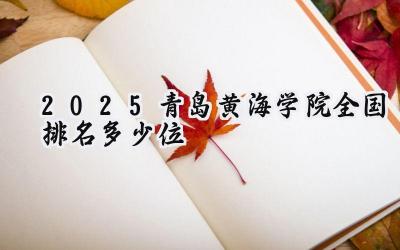 2025青岛黄海学院全国
排名多少位